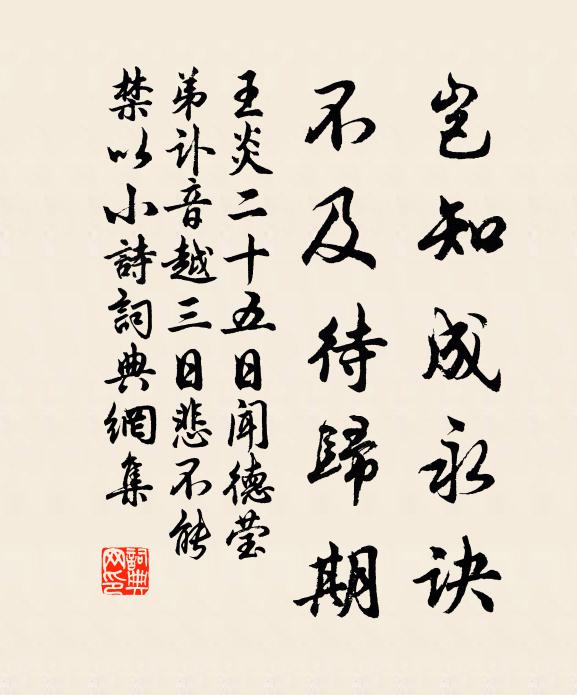 豈知成永訣
不及待歸期
王炎二十五日聞德瑩
弟訃音越三日悲不能
禁以小詩詞典網集
詞典网印